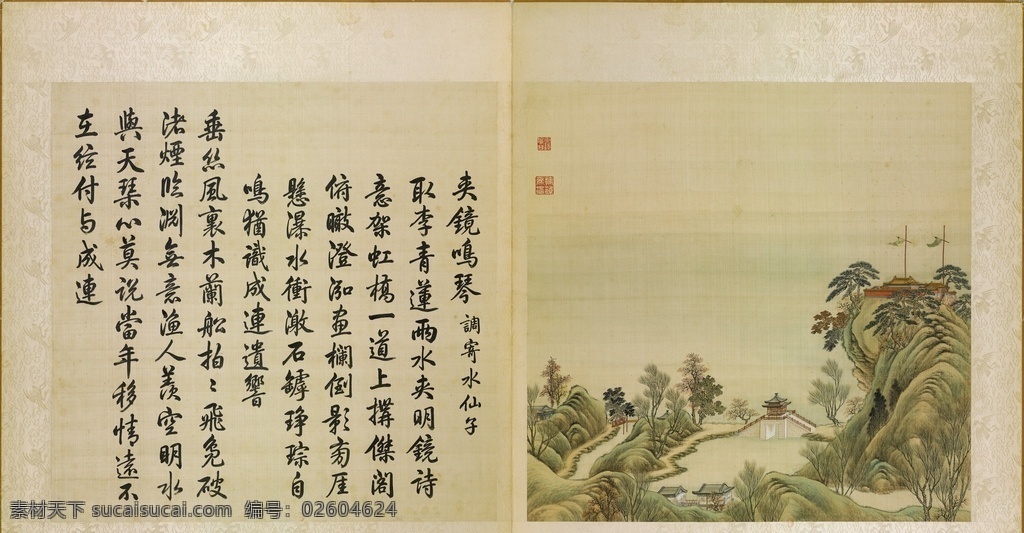 夾鏡鳴琴 調寄水仙子
取李青蓮兩水夾明鏡詩
意架虹橋一道上搆傑閣
俯瞰澄泓畫欄倒影旁厓
懸瀑水衝激石罅琤琮自
鳴猶識成連遺響
垂絲風裏木蘭船拍〻飛鳧破
渚煙臨淵無意漁人羨空明水
與天琴心莫說當年移情遠不
在絃付与成連
素材天下 sucaisucai.com 编号：02604624